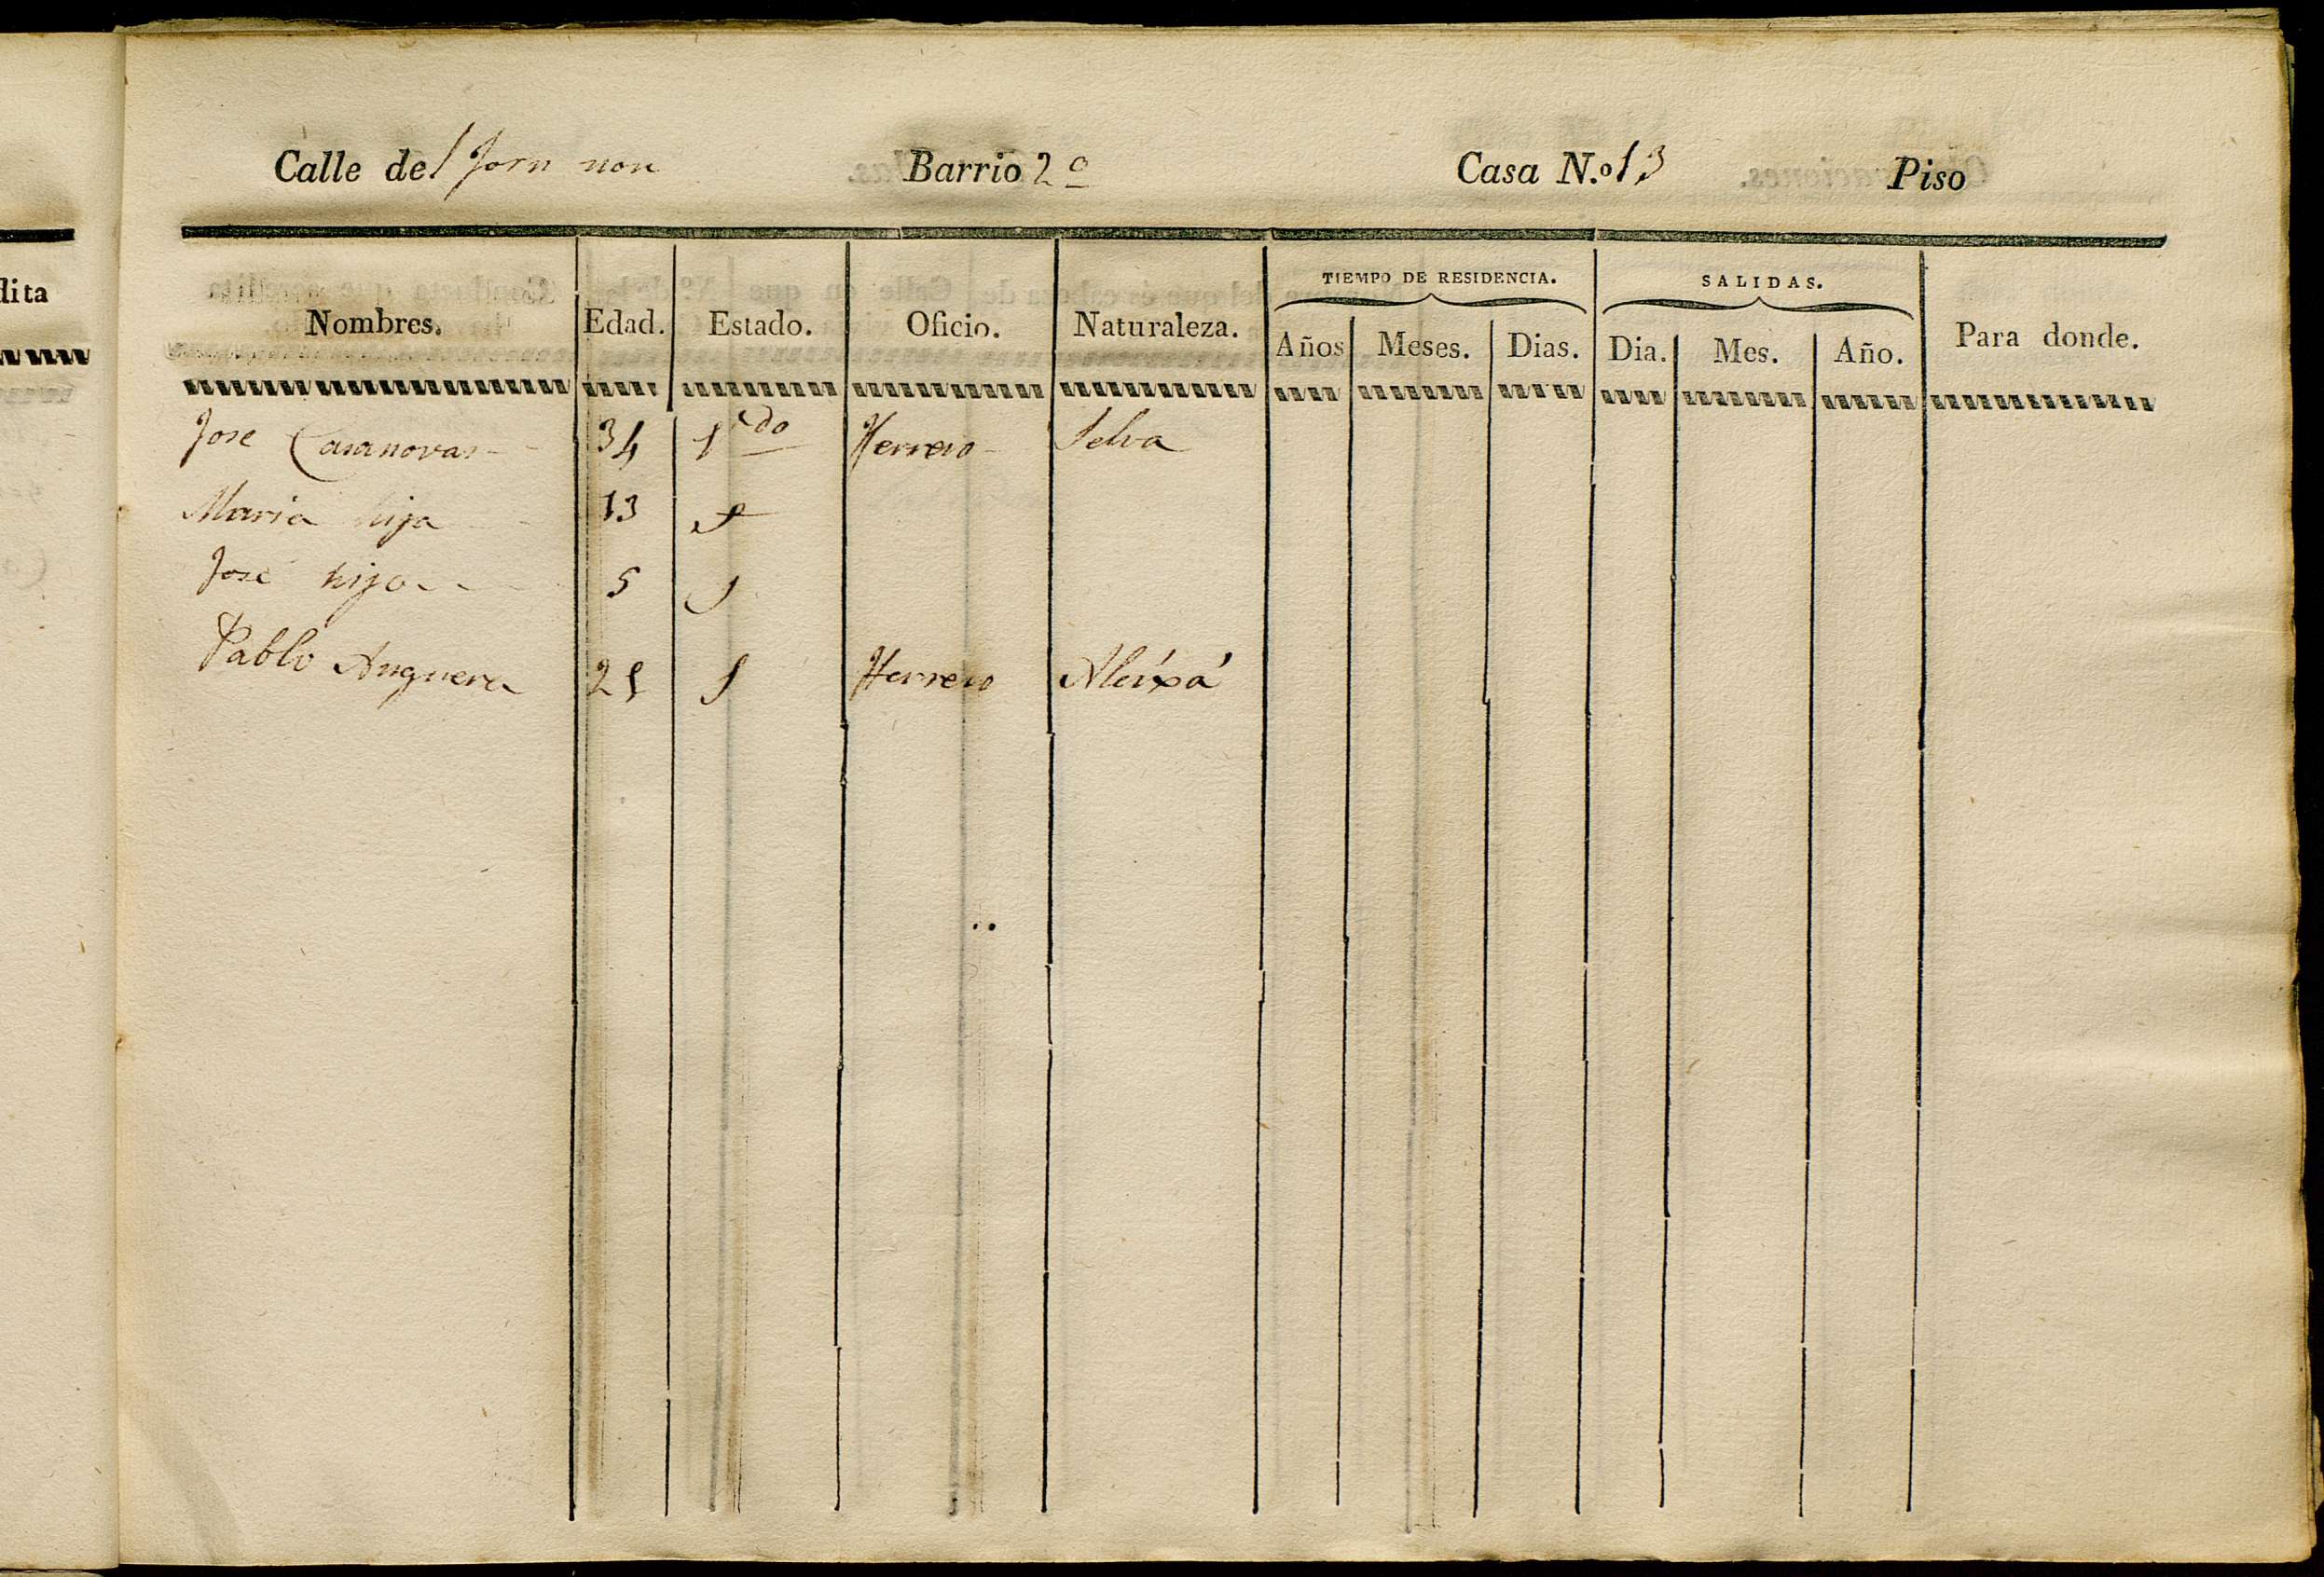 dita
Calle del Forn nou Barrio 2º Casa N.º 13 Piso
TIEMPO DE RESIDENCIA. SALIDAS.
Nombres. Edad. Estado. Oficio. Naturaleza. Años Meses. Dias. Dia. Mes. Año. Para donde.
Jose Casanovas 34 Vdo Herrero Selva
Maria hija 13 S
José hijo 5 S
Pablo Anguera 25 S Herrero Aleixá